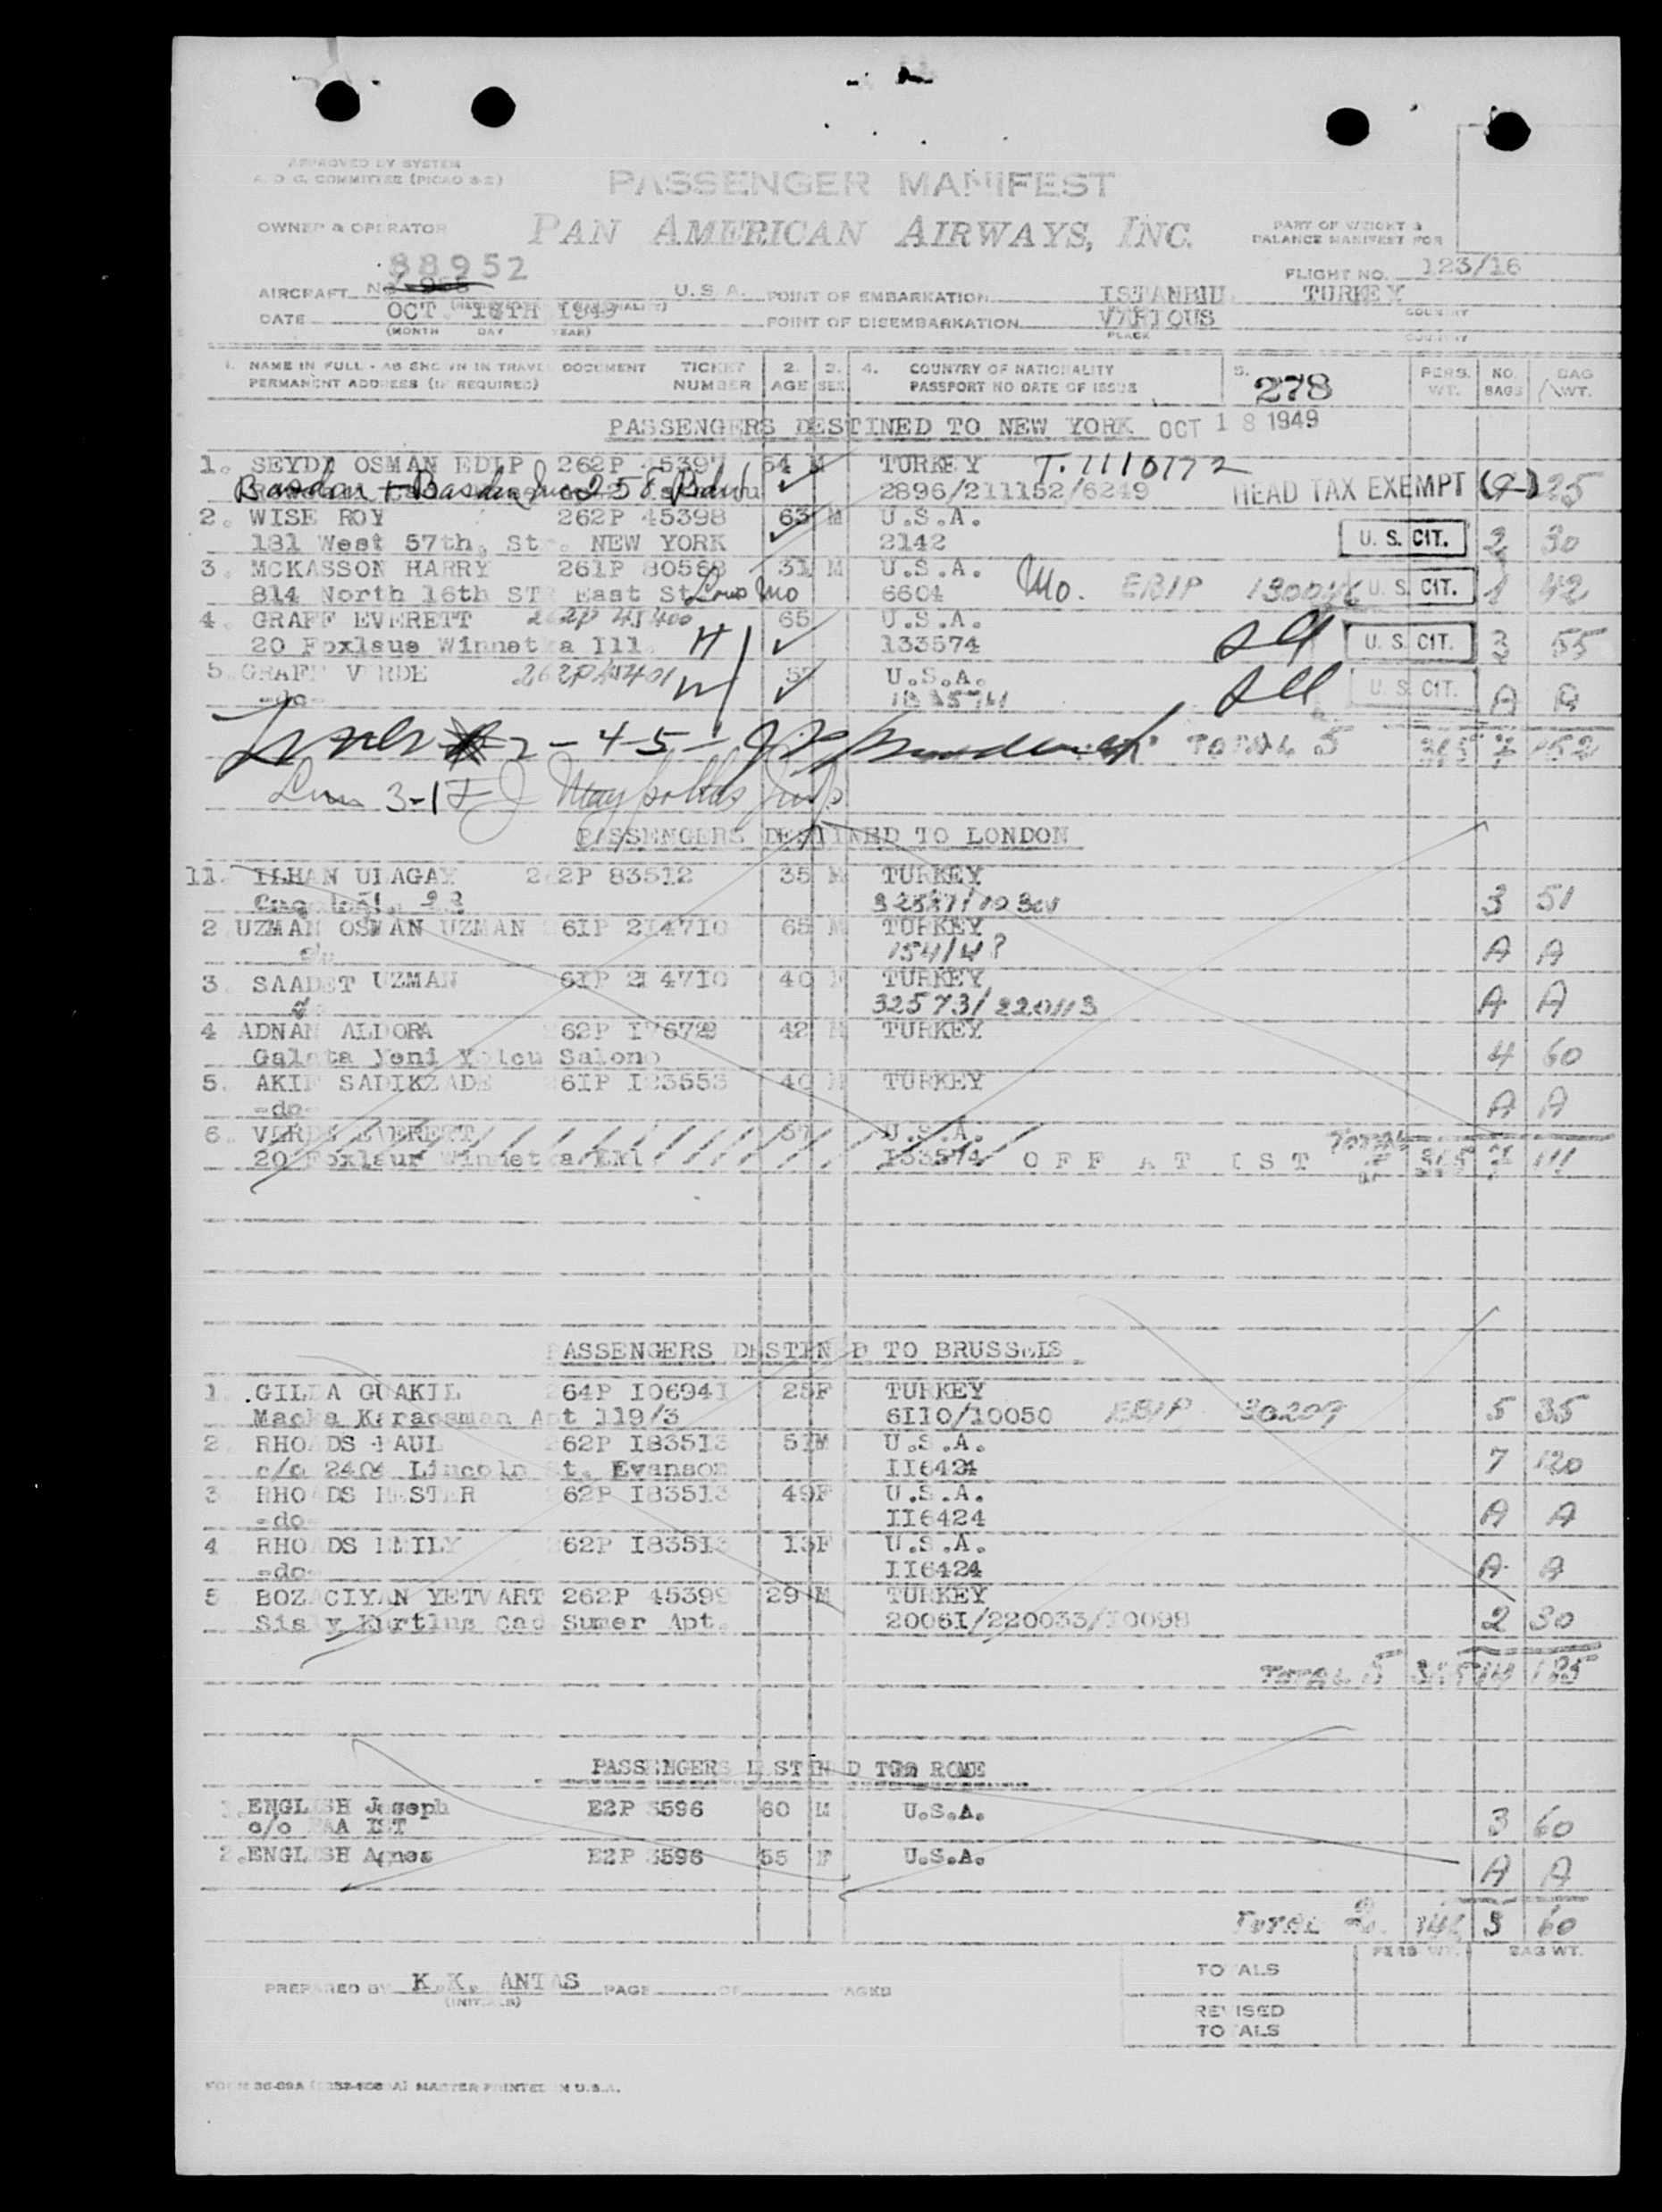 APPROVED BY SYSTEM
A. O. C. COMMITTEE (PICAO 8-2)
PASSENGER MANIFEST
OWNER & OPERATOR PAN AMERICAN AIRWAYS, INC.
PART OF WEIGHT &
BALANCE MANIFEST FOR
88952
FLIGHT NO. 123/16
AIRCRAFT U.S.A. POINT OF EMBARKATION ISTANBUL TURKEY
DATE OCT 1949 POINT OF DISEMBARKATION VARIOUS
(MONTH DAY YEAR) PLACE COUNTRY
1. NAME IN FULL - AS SHOWN IN TRAVEL DOCUMENT TICKET 2. 3. 4. COUNTRY OF NATIONALITY 5. 278 PERS. NO. BAG
PERMANENT ADDRESS (IF REQUIRED) NUMBER AGE SEX PASSPORT NO DATE OF ISSUE WT. BAGS WT.
PASSENGERS DESTINED TO NEW YORK OCT 18 1949
1. SEYDI OSMAN EDIP 262P 45397 54 M TURKEY T.1110772
2896/211152/6249 HEAD TAX EXEMPT 25
2. WISE ROY 262P 45398 63 M U.S.A.
181 West 57th, St. NEW YORK 2142 U. S. CIT. 2 30
3. MCKASSON HARRY 261P 80568 31 M U.S.A. Mo. EBIP
814 North 16th ST East St Louis Mo 6604 U. S. CIT. 1 42
4. GRAFF EVERETT 262P 45400 65 U.S.A.
20 Foxlaue Winnetka Ill. H 133574 U. S. CIT. 3 55
5. GRAFF VERDE 262P 45401 W 57 U.S.A.
-do- 133574 U. S. CIT. A A
2-4-5- TOTAL 5 152
3-1
PASSENGERS DESTINED TO LONDON
11. ILHAN ULAGAY 262P 83512 35 M TURKEY
3 51
2 UZMAN OSMAN UZMAN 61P 214710 65 M TURKEY
A A
3. SAADET UZMAN 61P 214710 40 TURKEY
32573/220113 A A
4 ADNAN ALDORA 62P 42 M TURKEY
Galata Yeni Yolcu Salonu 4 60
5. AKIF SADIKZADE 61P 40 M TURKEY
-do- A A
6. VERDE EVERETT 57 U.S.A. TOTAL
20 Foxlaur Winnetka Ill 133574 OFF AT IST 111
PASSENGERS DESTINED TO BRUSSELS
1. GILDA GUAKIL 264P I06941 25F TURKEY
Macka Karaosman Apt 119/3 6110/10050 EBIP 30209 5 35
2. RHOADS PAUL 262P I83513 51M U.S.A.
c/o 2408 Lincoln St. Evanson II6424 7 120
3 RHOADS HESTER 262P I83513 49F U.S.A.
-do- II6424 A A
4 RHOADS EMILY 262P I83513 13F U.S.A.
-do- II6424 A A
5 BOZACIYAN YETVART 262P 45399 29 M TURKEY
Sisly Kurtlus Cad Sumer Apt. 2006I/220033/I0098 2 30
TOTAL 5
PASSENGERS DESTINED TO ROME
1. ENGLISH Joseph E2P 3596 60 M U.S.A.
c/o PAA IST 3 60
2. ENGLISH Agnes E2P 3596 55 F U.S.A. A A
TOTAL 2. 3 60
PREPARED BY K.K. ANTAS PAGE OF PAGES
(INITIALS)
PERS WT. BAG WT.
TOTALS
REVISED
TOTALS
MASTER PRINTED IN U.S.A.